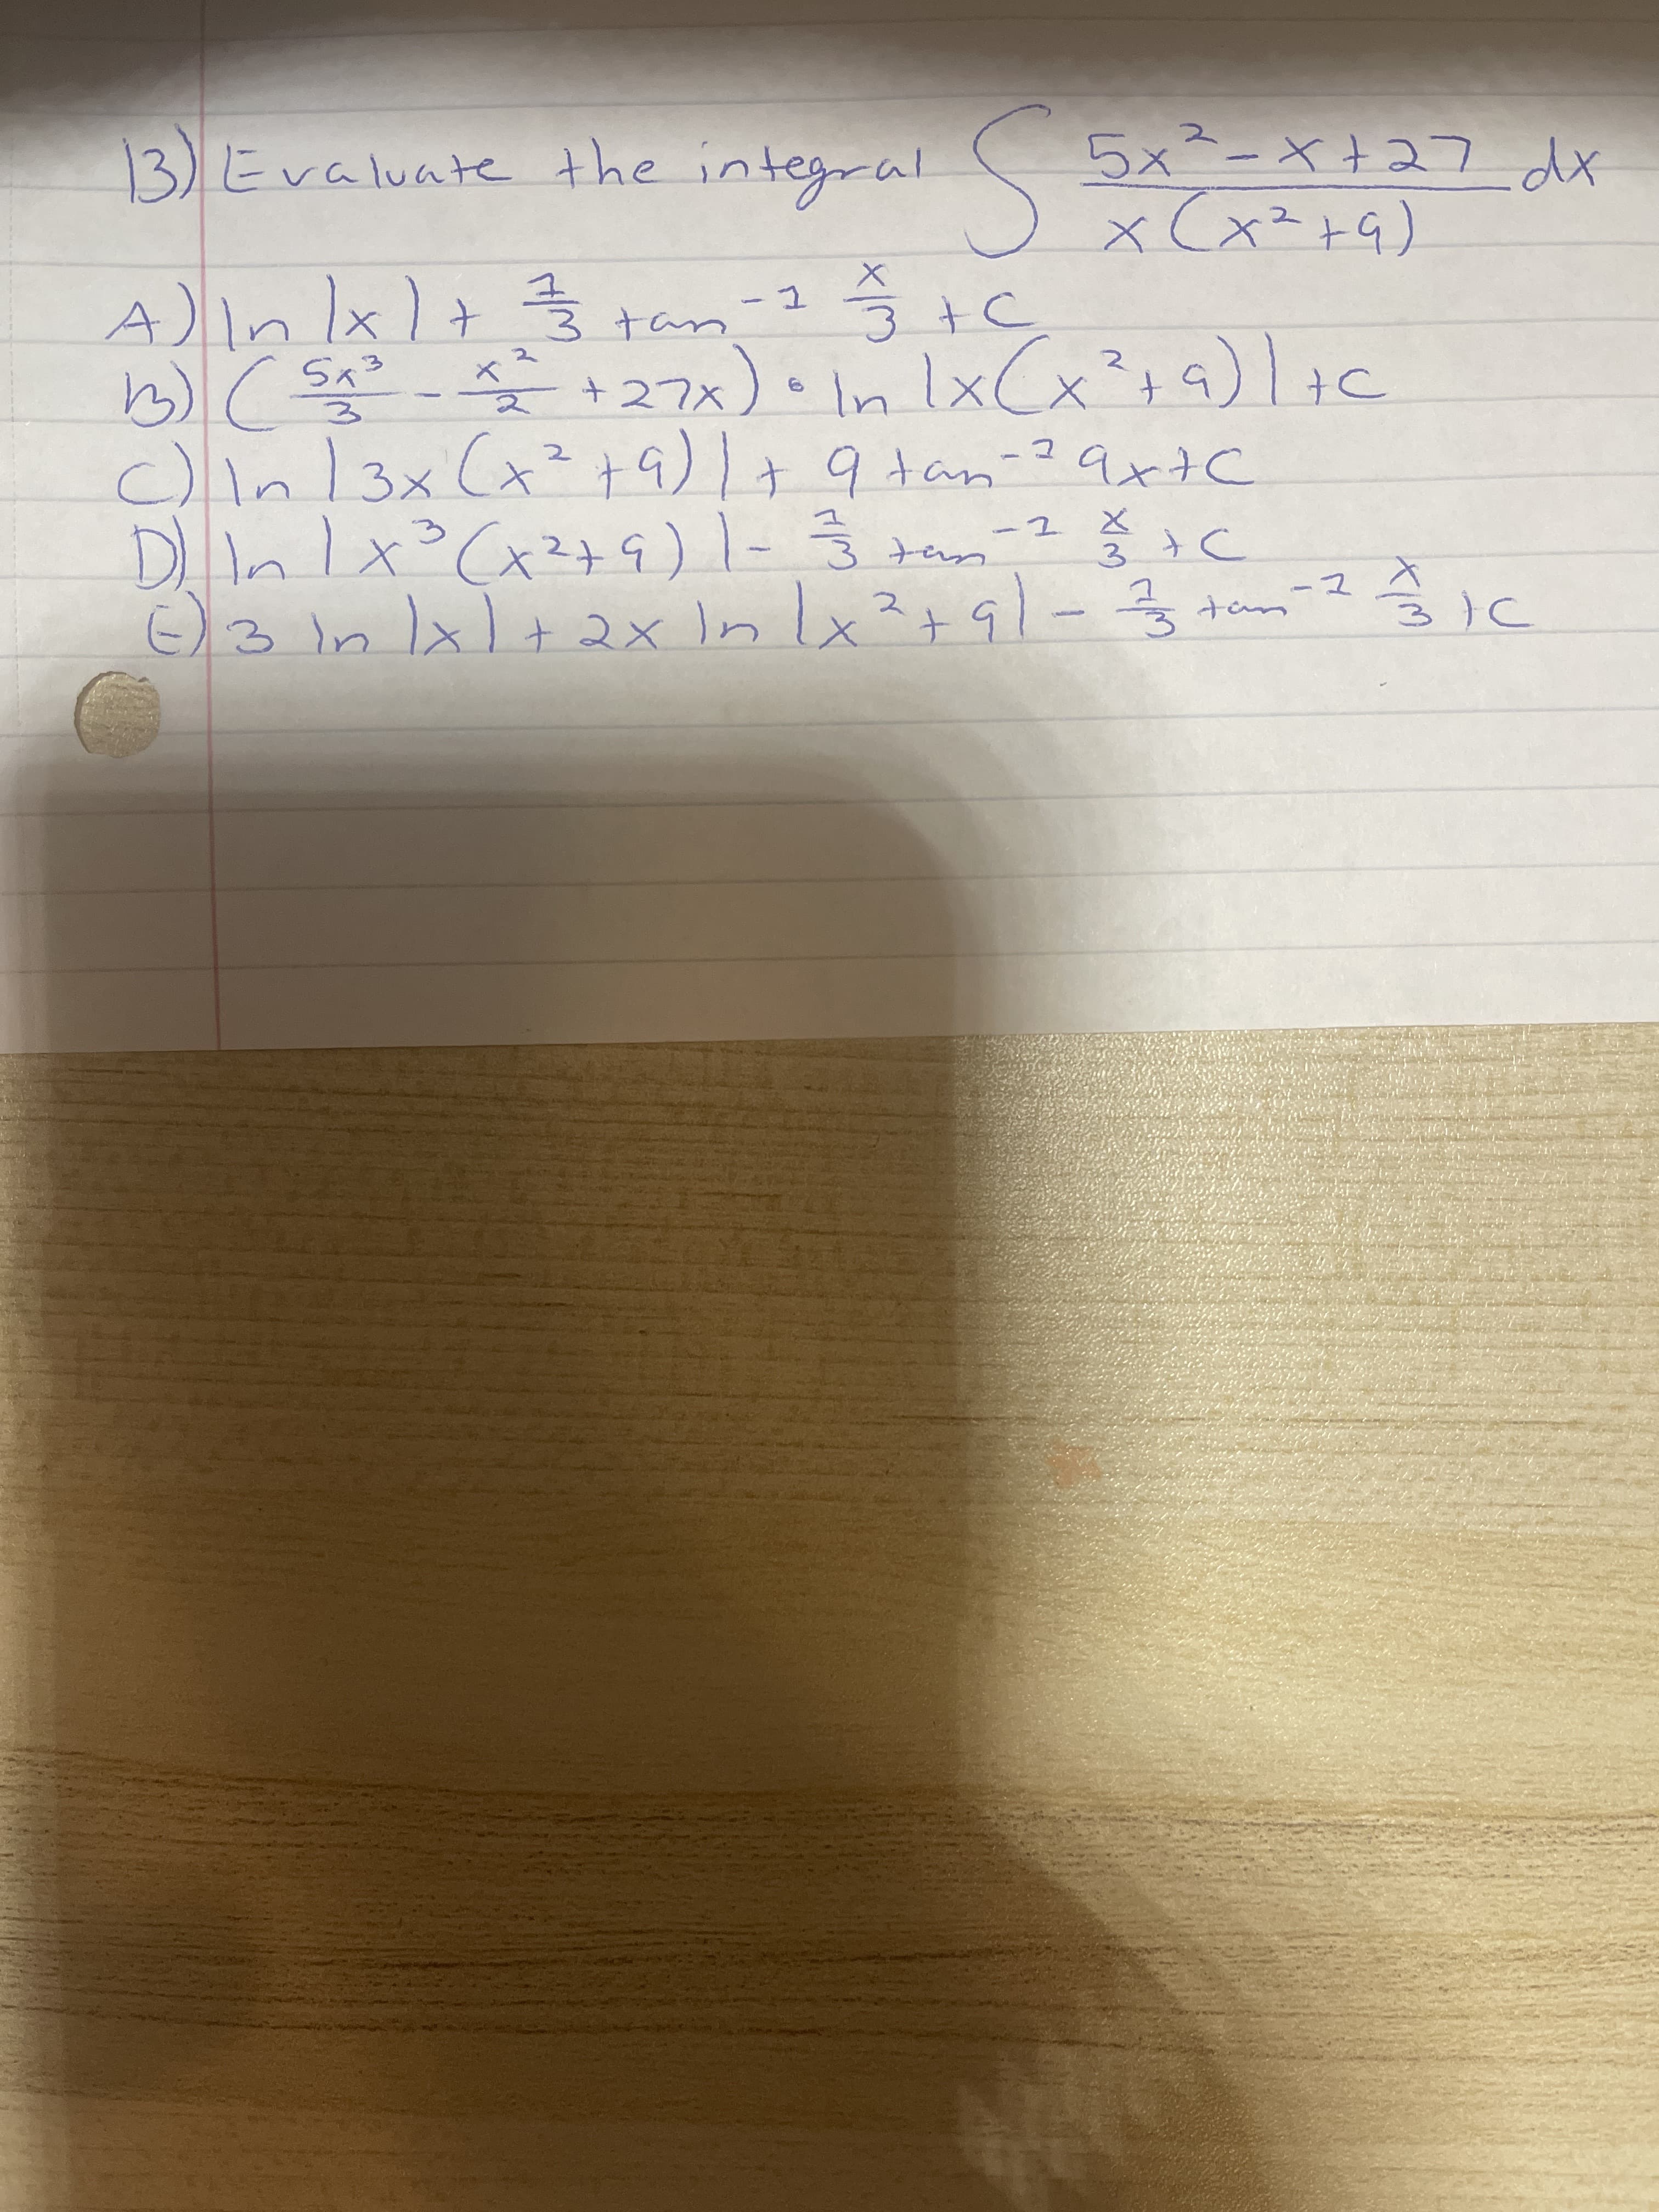 13) Evaluate the integral ∫ (5x² - x + 27)/(x(x² + 9)) dx
A) ln |x| + 1/3 tan⁻¹ x/3 + C
B) (5x³/3 - x²/2 + 27x) • ln |x(x² + 9)| + C
C) ln |3x(x² + 9)| + 9 tan⁻¹ 9x + C
D) ln |x³(x² + 9)| - 1/3 tan⁻¹ x/3 + C
E) 3 ln |x| + 2x ln |x² + 9| - 1/3 tan⁻¹ x/3 + C